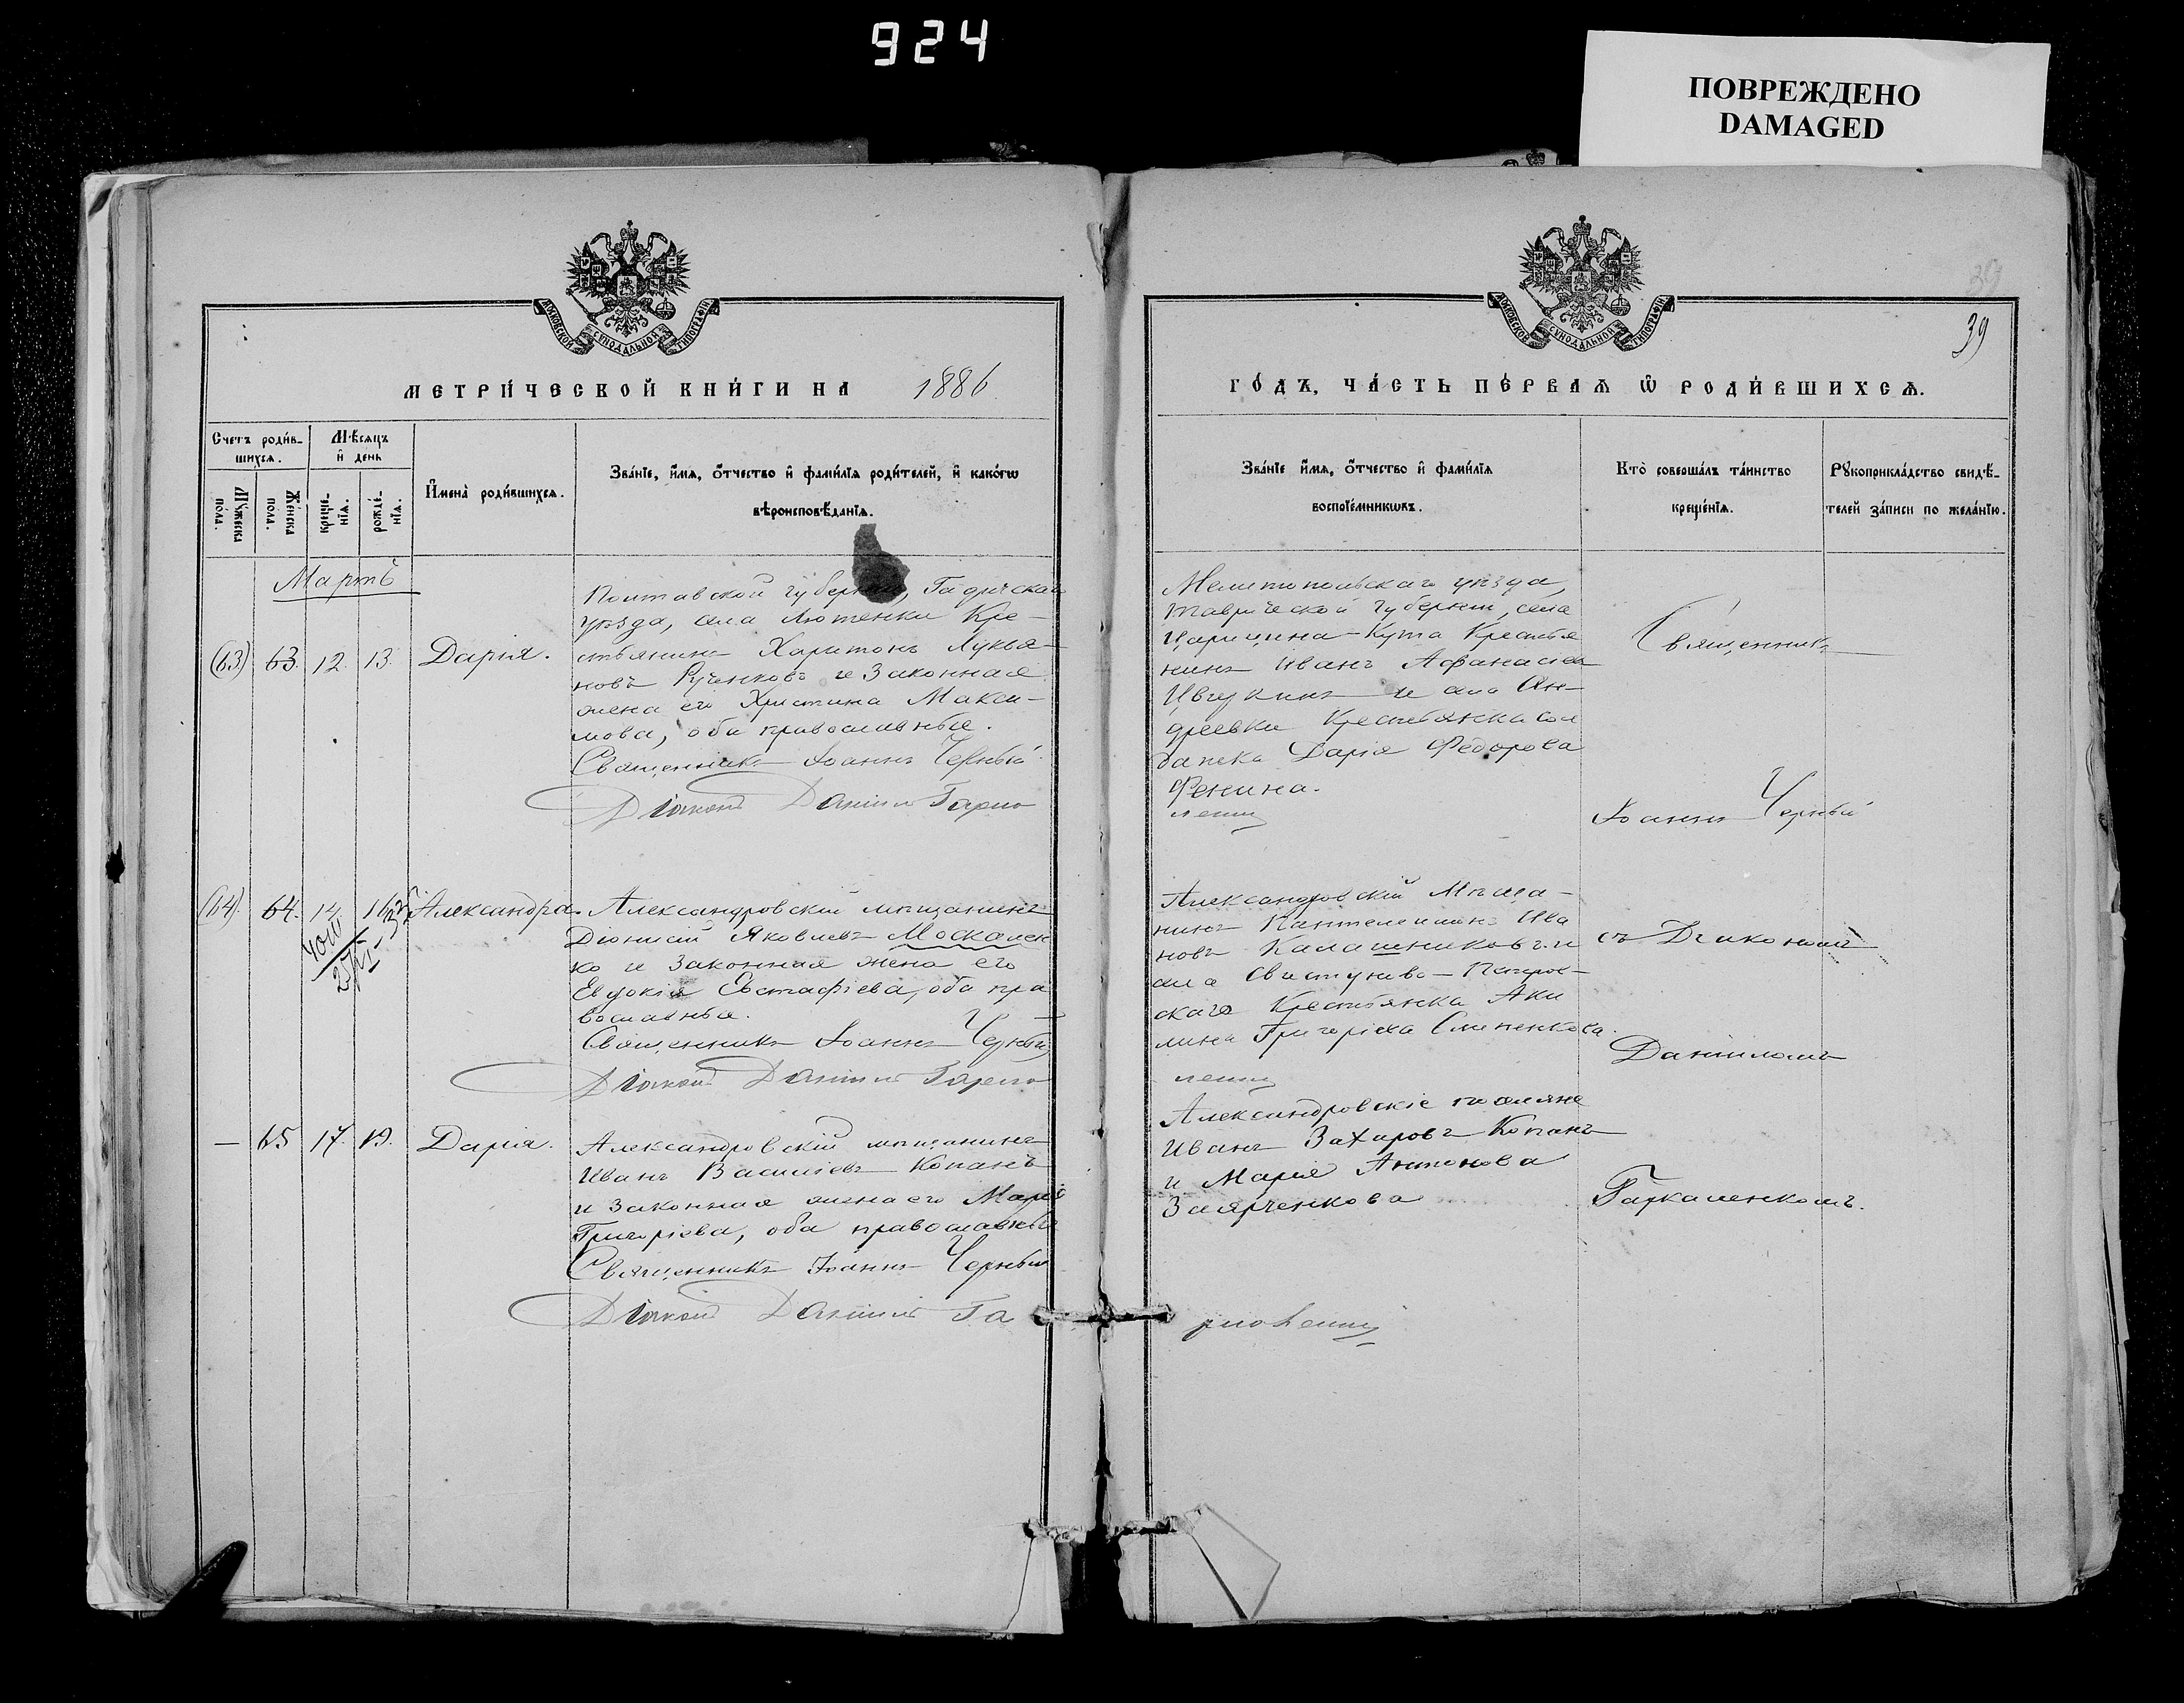 924
ПОВРЕЖДЕНО
DAMAGED
МОСКОВСКОЙ СѴНОДАЛЬНОЙ ТИПОГРАФІИ
МОСКОВСКОЙ СѴНОДАЛЬНОЙ ТИПОГРАФІИ
39
39
МЕТРИ́ЧЕСКОЙ КНИ́ГИ НА 1886
ГО́ДЪ, ЧА́СТЬ ПЕ́РВАѦ Ѽ РОДИ́ВШИХСѦ.
Счетъ роди́в-
шихсѧ.
Мꙋжеска
пола.
Же́нска
пола.
Мѣсѧцъ
и҆ день
креще́-
нїѧ.
рожде́-
нїѧ.
И҆мена̀ роди́вшихсѧ.
Зва́нїе, и҆́мѧ, ѻ҆́тчество и҆ фами́лїѧ роди́телей, и҆ како́гѡ
вѣроисповѣ́данїѧ.
Зва́нїе и҆́мѧ, ѻ҆́тчество и҆ фами́лїѧ
воспрїе́мникѡвъ.
Кто̀ соверша́лъ та́инство
креще́нїѧ.
Рꙋкоприкла́дство свидѣ́-
телей за́писи по жела́нїю.
Мартъ
(63) 63. 12. 13. Дарія.
Полтавской губерніи, Гадячскаго
уѣзда, села Лютенки Кре-
стьянинъ Харитонъ Лукья-
новъ Рученковъ и Законная
жена его Христина Макси-
мова, оба православные.
Священникъ Іоаннъ Черный
Діаконъ Даніилъ Гарко
Мелитопольскаго уѣзда,
Таврической губерніи, села
Царицина-Кута Крестья
нинъ Иванъ Афанасіев
и села Ан-
дреевки Крестьянка сол
датка Дарія Федорова
Фенина.
ленко
Священникъ
Іоаннъ Черный
(64). 64. 14. 16. Александра.
Александровскій мѣщанинъ
Діонисій Яковлевъ Москален
ко и Законная жена его
Евдокія Евстафіева, оба пра
вославные.
Священникъ Іоаннъ Черный
Діаконъ Даніилъ Гарко
Александровскій Мѣща-
нинъ Пантелеимонъ Ива
новъ Калашниковъ и
села Свистуново-Петров-
скаго Крестьянка Аки
лина Григоріева
ленко
съ Діакономъ
Даніиломъ
— 65 17. 19. Дарія.
Александровскій мѣщанинъ
Иванъ Василіевъ Копанъ
и Законная жена его Марія
Григоріева, оба православные
Священникъ Іоаннъ Черный
Діаконъ Даніилъ Га
Александровскіе поселяне
Иванъ Захаровъ Копанъ
и Марія Антонова
Заярченкова
Гаркаленкомъ.